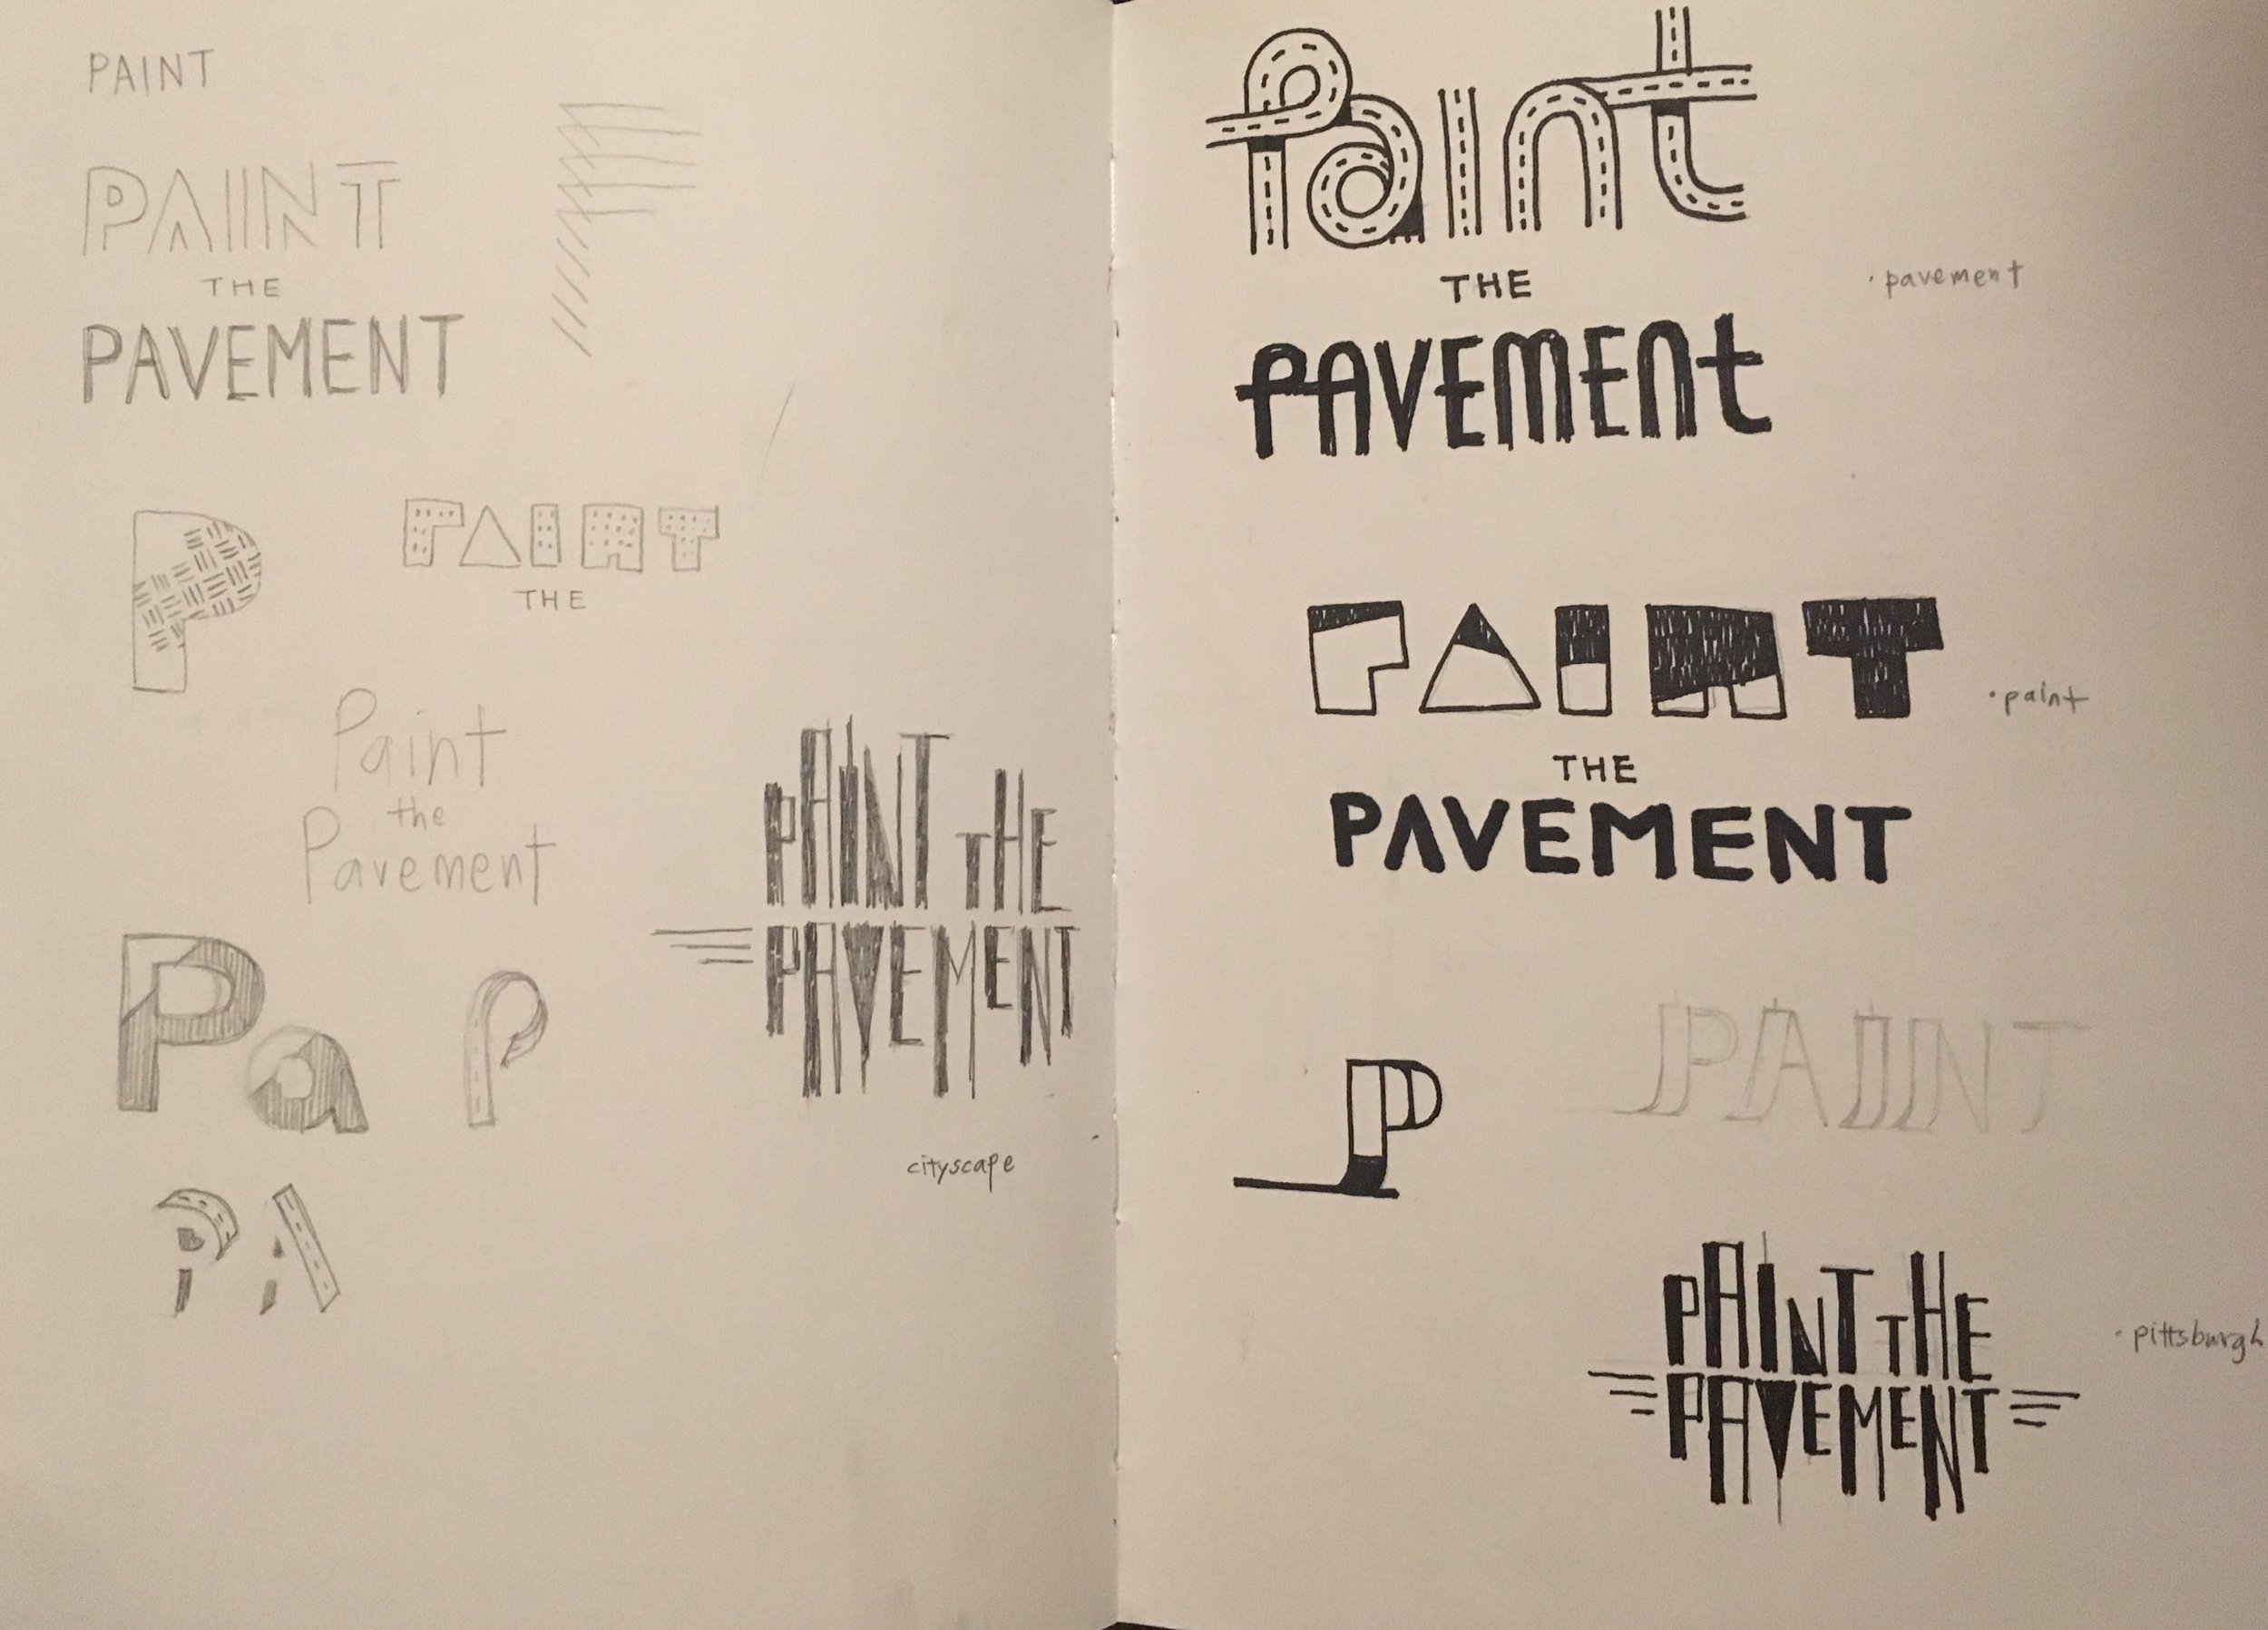 PAINT
PAINT
THE
PAVEMENT
P
PAINT
THE
Paint
the
Pavement
PAINT THE
PAVEMENT
Pa
P
cityscape
PA
Paint
THE
PAVEMENt
· pavement
PAINT
· paint
THE
PAVEMENT
PAINT
P
PAINT THE
PAVEMENT
· pittsburgh